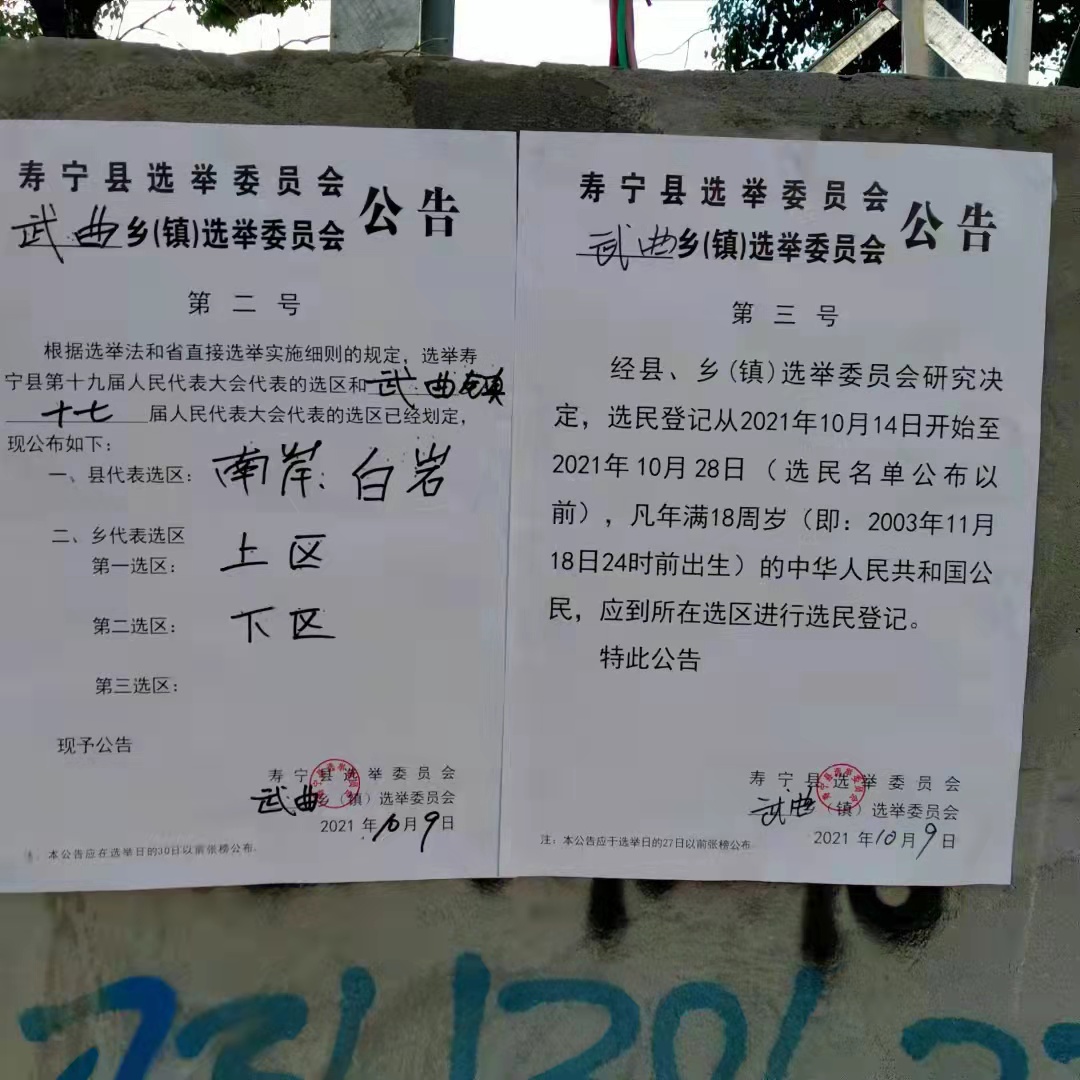 寿宁县选举委员会
武曲乡(镇)选举委员会
公告
第二号
根据选举法和省直接选举实施细则的规定，选举寿
宁县第十九届人民代表大会代表的选区和武曲镇
十七届人民代表大会代表的选区已经划定，
现公布如下：
一、县代表选区：南岸、白岩
二、乡代表选区
第一选区：上区
第二选区：下区
第三选区：
现予公告
寿宁县选举委员会
武曲乡（镇）选举委员会
2021年10月9日
注：本公告应在选举日的30日以前张榜公布.
寿宁县选举委员会
武曲乡(镇)选举委员会
公告
第三号
经县、乡(镇)选举委员会研究决
定，选民登记从2021年10月14日开始至
2021年10月28日（选民名单公布以
前），凡年满18周岁（即：2003年11月
18日24时前出生）的中华人民共和国公
民，应到所在选区进行选民登记。
特此公告
寿宁县选举委员会
武曲（镇）选举委员会
2021年10月9日
注：本公告应于选举日的27日以前张榜公布.